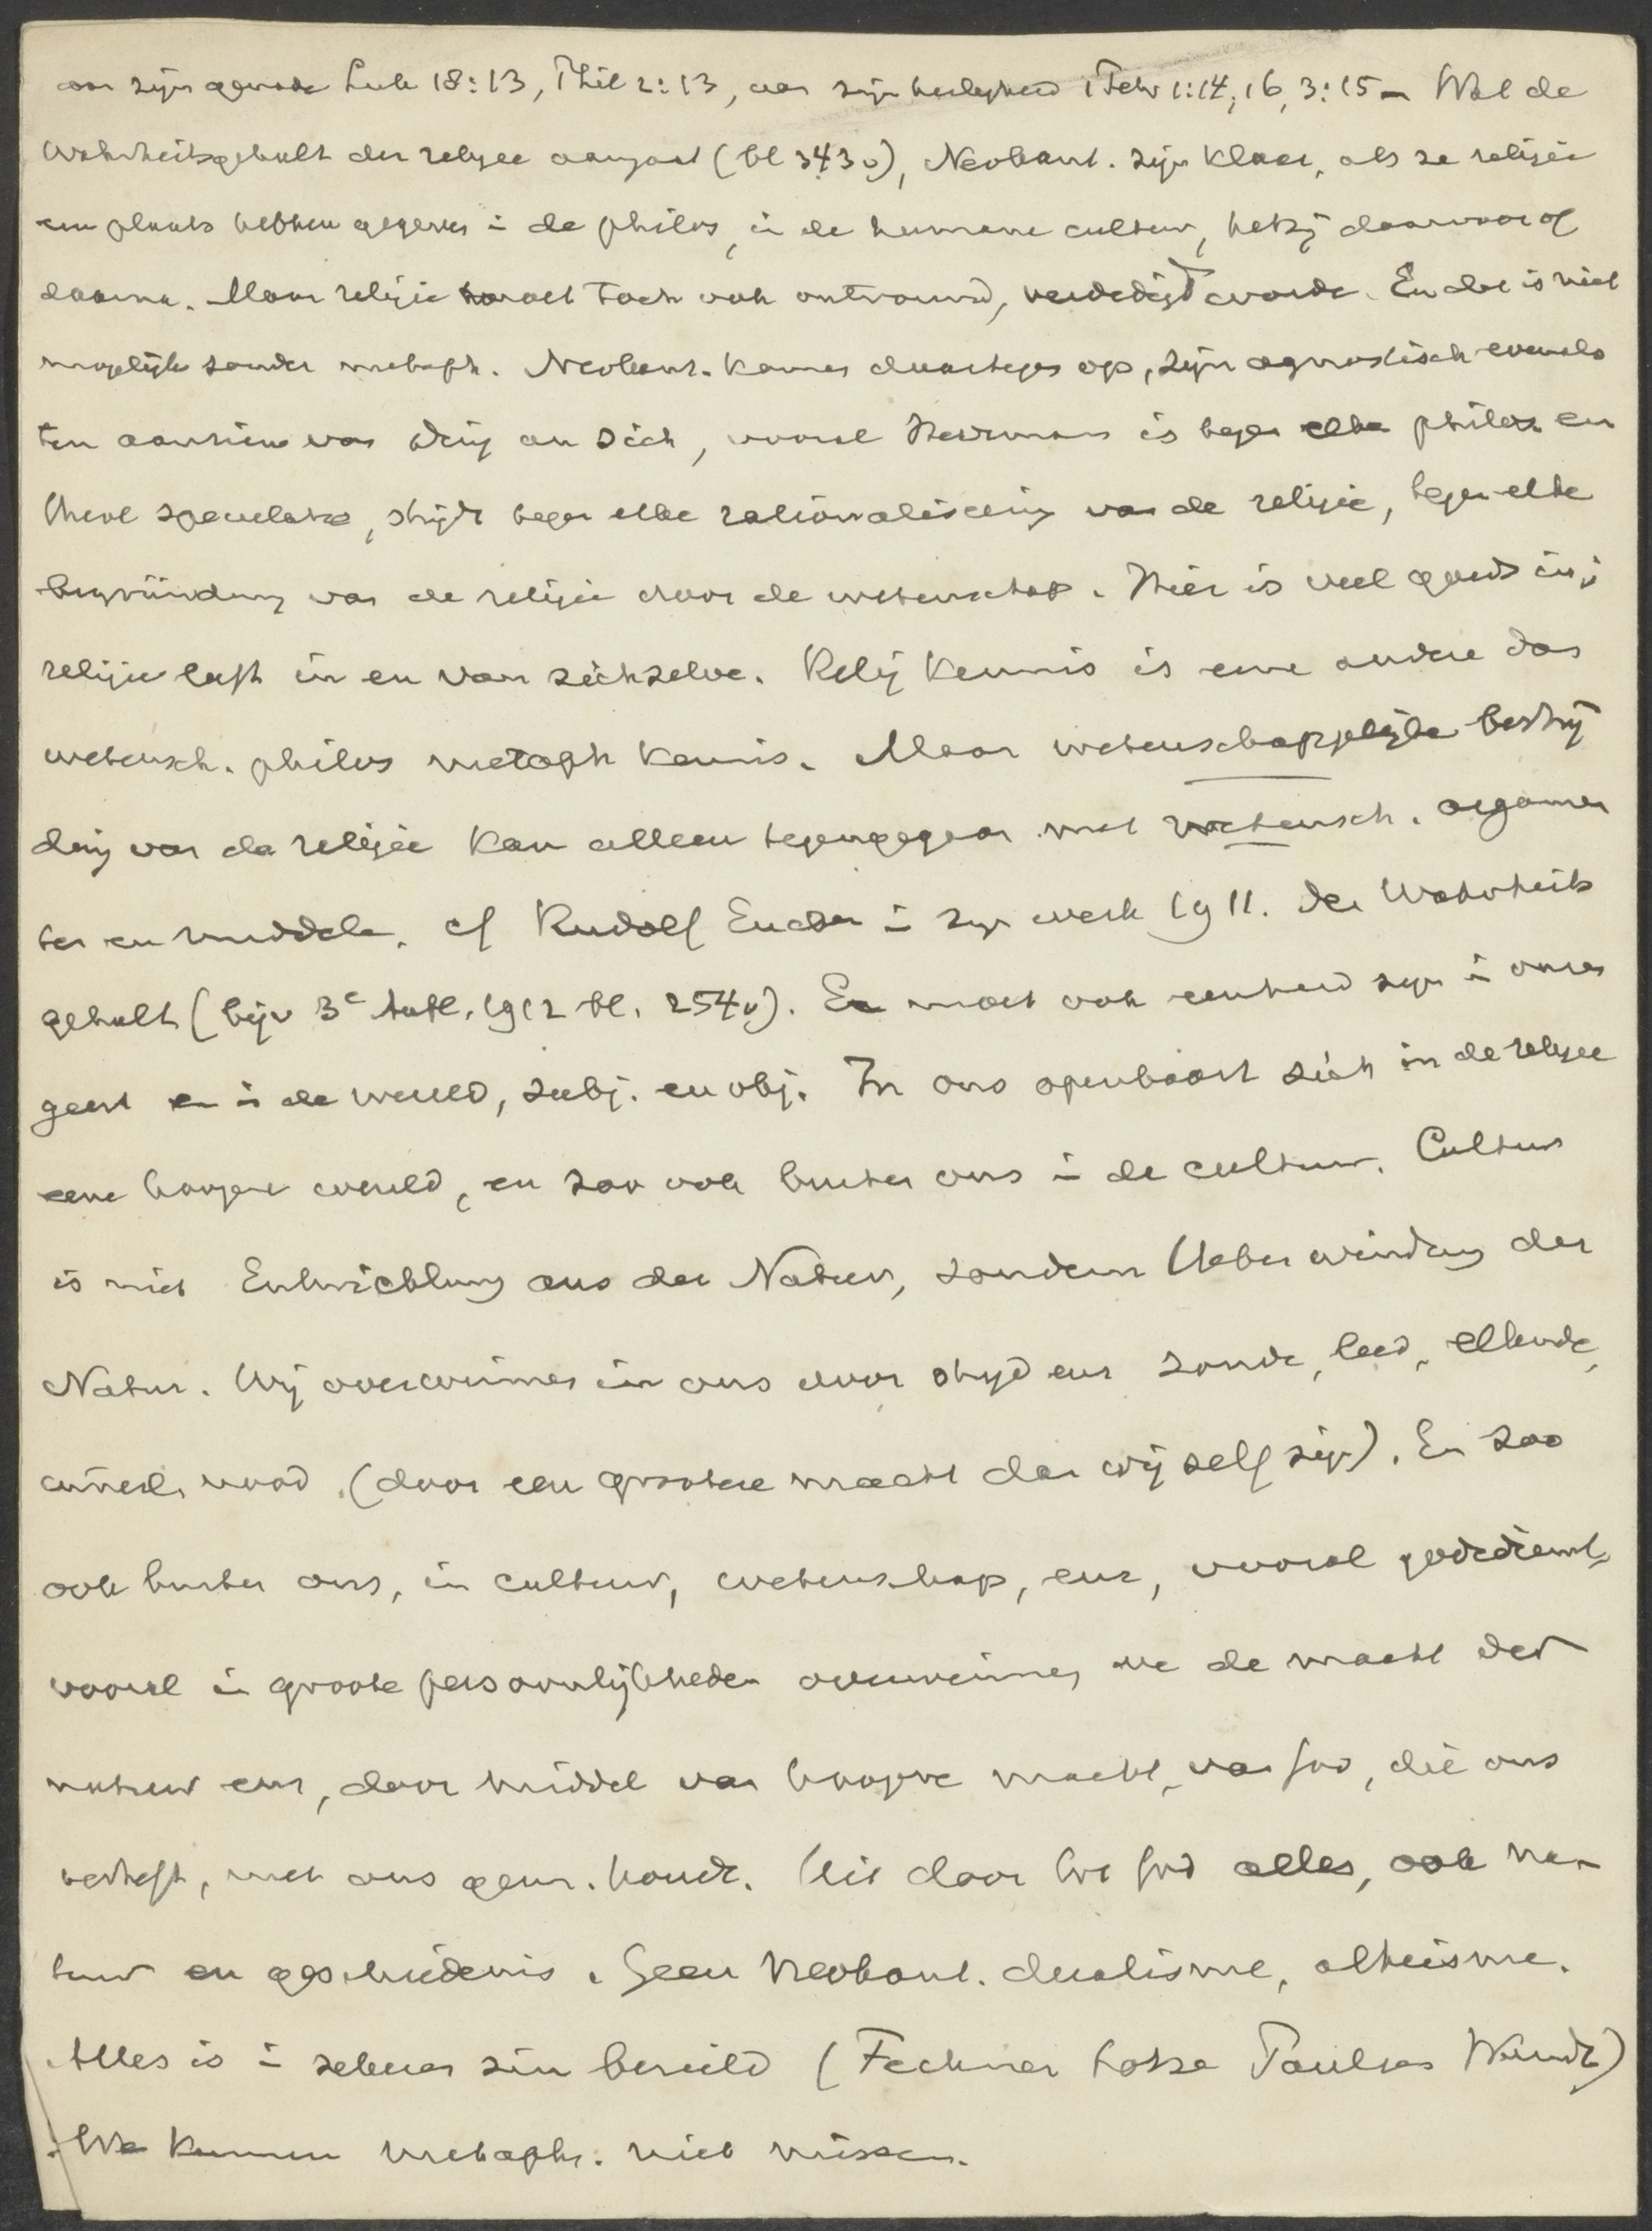 aan zijn genade Luk 18:13, Phil 2:13, aan zijn heiligheid 1 Petr 1:14, 16, 3:15 – Wat de
Wahrheitsgehalt der religie aangaat (bl 343 v), Neokant. zijn klaar, als ze religie
een plaats hebben gegeven in de philos, in de humane cultuur, hetzij daarvoor of
daarna. Maar religie moet toch ook ontvouwd, verdedigd worde. En dat is niet
mogelijk zonder metaph. Neokant. komen daartegen op, zijn agnostisch evenals
ten aanzien van Ding an Sich, vooral Herrmann is tegen elke philos. en
theol speculatie, strijdt tegen elke rationaliseering van de religie, tegen elke
begründung van de religie door de wetenschap. Hier is veel goeds in;
religie leeft in en van zichzelve. Relig kennis is eene andere dan
wetensch. philos metaph kennis. Maar wetenschappelijke bestrij
ding van de religie kan alleen tegengegaan met wetensch. argumen
ten en middelen. cf Rudolf Eucken in zijn werk 1911. Der Wahrheits
gehalt (bijv 3e Aufl. 1912 bl. 254 v). Er moet ook eenheid zijn in onze
geest en in de wereld, subj. en obj. In ons openbaart zich in de religie
eene hoogere wereld, en zoo ook buiten ons in de cultuur. Cultur
is nicht Entwicklung aus der Natur, sondern Ueberwindung der
Natur. Wij overwinnen in ons door strijd enz zonde, leed, ellende,
nood (door een grootere macht dan wij zelf zijn). En zoo
ook buiten ons, in cultuur, wetenschap, enz, vooral godsdienst,
vooral in groote persoonlijkheden overwinnen we de macht der
natuur enz, door middel van hoogere macht, van God, die ons
verheft, met ons gem. houdt. Uit door tot God alles, ook na-
tuur en geschiedenis. Geen Neokant. dualisme, atheisme.
Alles is in zekeren zin bezield (Fechner Lotze Paulsen Wundt)
We kunnen metaph. niet missen.